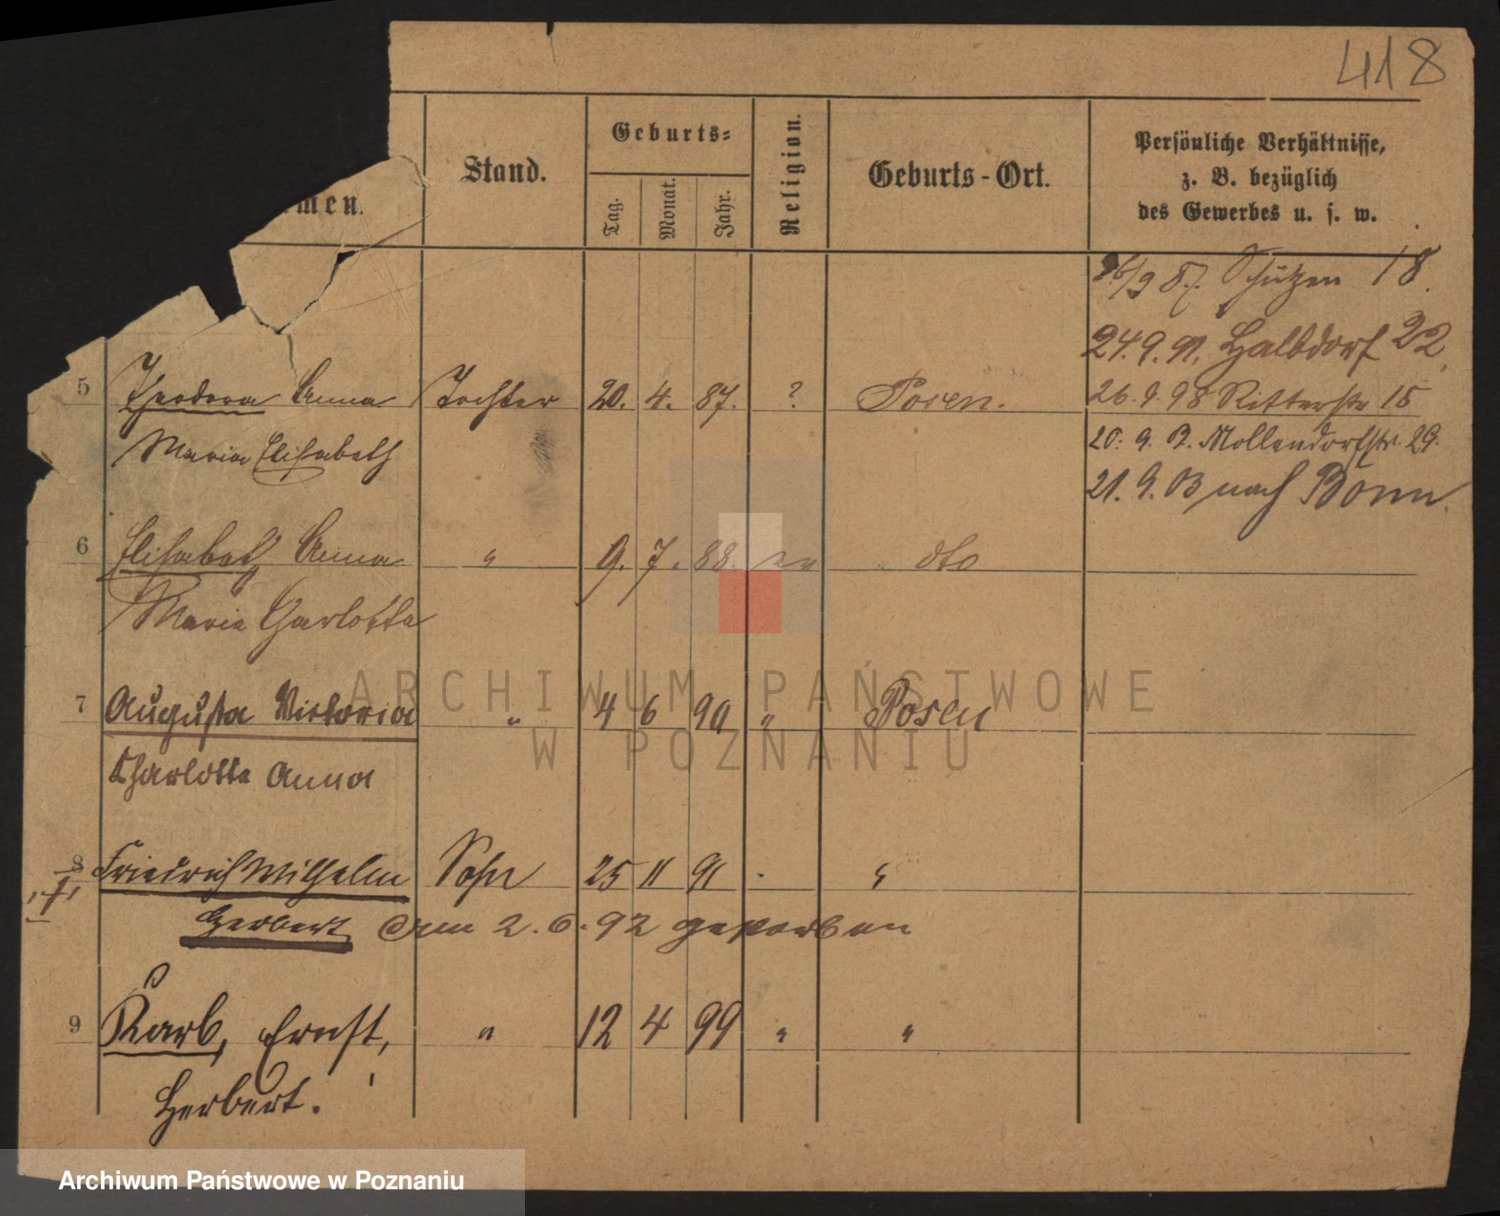 418
Stand.
Geburts-
Religion.
Geburts-Ort.
Persönliche Verhältnisse,
z. B. bezüglich
des Gewerbes u. s. w.
men.
Tag.
Monat.
Jahr.
26/9 87. Schützen 18.
24.9.91. Halbdorf 22.
5 Theodora Anna Tochter 20. 4. 87. ? Posen. 26.9.98 Ritterstr 15
Maria Elisabeth 20. 9. Mollendorfstr. 29.
21. 9. 03 nach Bonn.
6 Elisabeth Anna " 9. 7. 88. ev dto
Marie Charlotte
7 Augusta Victoria " 4 6 90 " Posen
Charlotte Anna
8 Friedrich Wilhelm Sohn 25 11 91 "
Herbert am 2.6.92 gestorben
9 Karl, Ernst, " 12 4 99 " "
Herbert.
ARCHIWUM PAŃSTWOWE
W POZNANIU
Archiwum Państwowe w Poznaniu